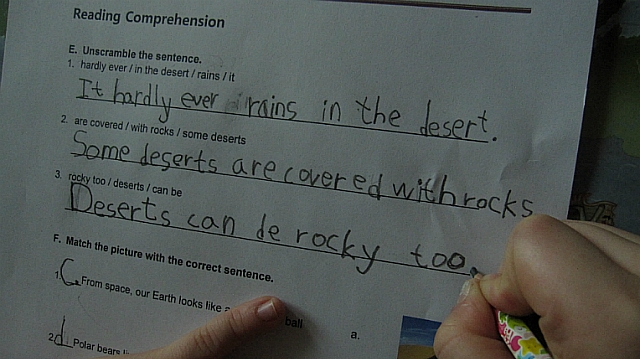 Reading Comprehension
E. Unscramble the sentence.
1. hardly ever / in the desert / rains / it
It hardly ever rains in the desert.
2. are covered / with rocks / some deserts
Some deserts are covered with rocks
3. rocky too / deserts / can be
Deserts can de rocky too
F. Match the picture with the correct sentence.
1. C From space, our Earth looks like a ball
a.
2. d Polar bears